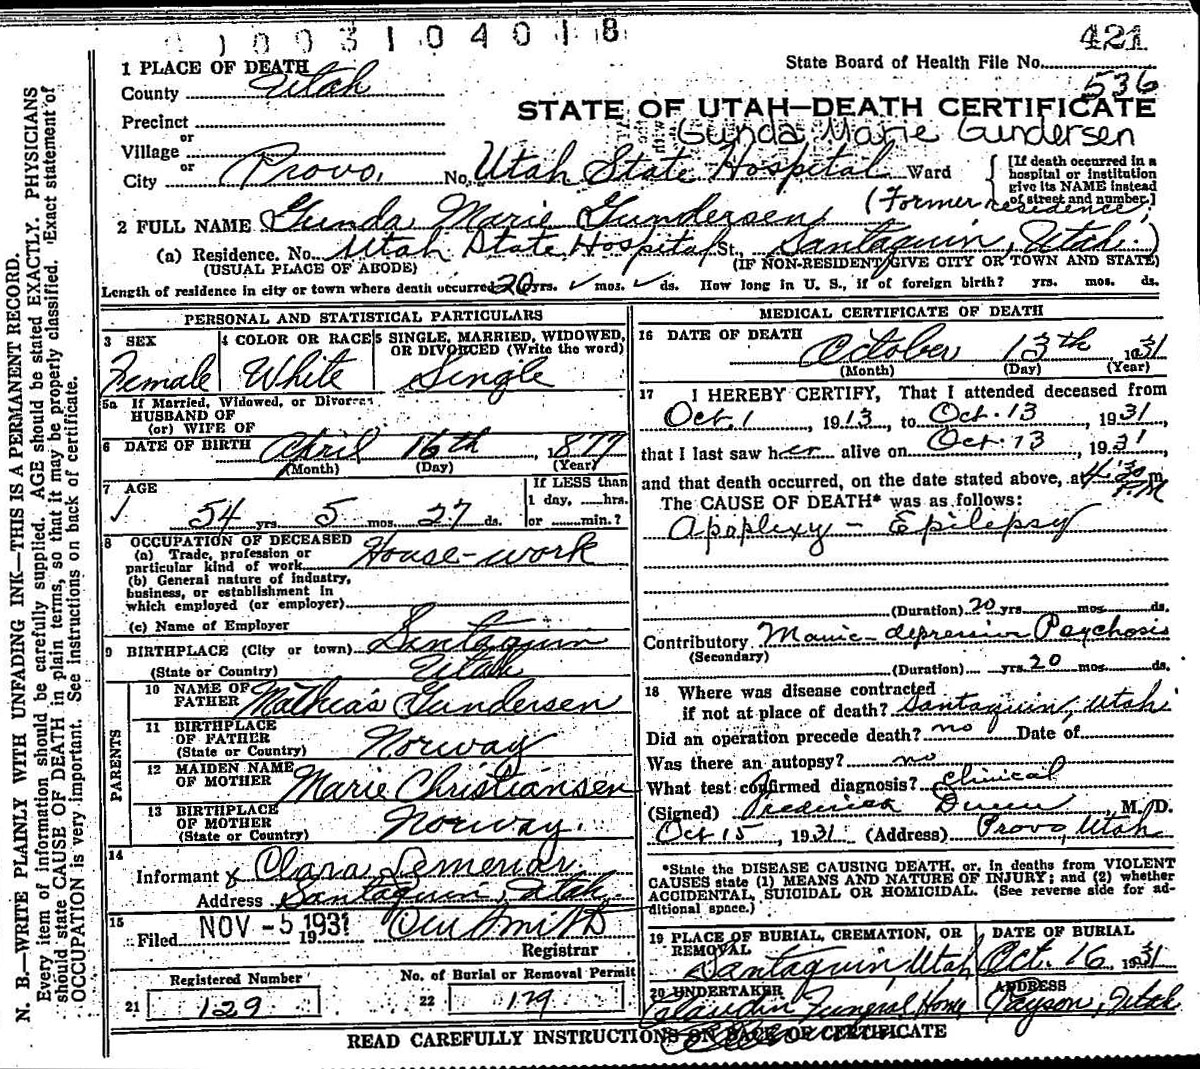 0100310401 8
421
State Board of Health File No.
536
STATE OF UTAH—DEATH CERTIFICATE
Gunda Marie Gundersen
1 PLACE OF DEATH
County Utah
Precinct
or
Village
or
City Provo, No. Utah State Hospital Ward
[If death occurred in a hospital or institution give its NAME instead of street and number.]
2 FULL NAME Gunda Marie Gundersen (Former residence,
(a) Residence. No. Utah State Hospital St., Santaquin, Utah.)
(USUAL PLACE OF ABODE) (IF NON-RESIDENT GIVE CITY OR TOWN AND STATE)
Length of residence in city or town where death occurred 20 yrs. ✓ mos. ✓ ds. How long in U. S., if of foreign birth? yrs. mos. ds.
PERSONAL AND STATISTICAL PARTICULARS
3 SEX Female
4 COLOR OR RACE White
5 SINGLE, MARRIED, WIDOWED, OR DIVORCED (Write the word) Single
5a If Married, Widowed, or Divorced
HUSBAND OF
(or) WIFE OF
6 DATE OF BIRTH April 16th, 1877
(Month) (Day) (Year)
7 AGE
✓ 54 yrs. 5 mos. 27 ds.
If LESS than
1 day, hrs.
or min.?
8 OCCUPATION OF DECEASED
(a) Trade, profession or
particular kind of work House-work
(b) General nature of industry,
business, or establishment in
which employed (or employer)
(c) Name of Employer
9 BIRTHPLACE (City or town) Santaquin
(State or Country) Utah
PARENTS
10 NAME OF FATHER Mathias Gundersen
11 BIRTHPLACE OF FATHER (State or Country) Norway
12 MAIDEN NAME OF MOTHER Marie Christiansen
13 BIRTHPLACE OF MOTHER (State or Country) Norway.
14
Informant x Clara
Address Santaquin, Utah.
15
Filed NOV -5 1931 19
Registrar
Registered Number
21 129
No. of Burial or Removal Permit
22 179
MEDICAL CERTIFICATE OF DEATH
16 DATE OF DEATH October 13th 1931
(Month) (Day) (Year)
17 I HEREBY CERTIFY, That I attended deceased from
Oct. 1, 1913, to Oct. 13, 1931,
that I last saw her alive on Oct. 13, 1931,
and that death occurred, on the date stated above, at 4:30 m.
P.M
The CAUSE OF DEATH* was as follows:
Apoplexy – Epilepsy
(Duration) 20 yrs. mos. ds.
Contributory Manic-depressive Psychosis
(Secondary)
(Duration) yrs. 20 mos. ds.
18 Where was disease contracted
if not at place of death? Santaquin, Utah
Did an operation precede death? no Date of
Was there an autopsy? no
What test confirmed diagnosis? Clinical
(Signed) Frederick M. D.
Oct 15, 1931. (Address) Provo, Utah
*State the DISEASE CAUSING DEATH, or, in deaths from VIOLENT
CAUSES state (1) MEANS AND NATURE OF INJURY; and (2) whether
ACCIDENTAL, SUICIDAL OR HOMICIDAL. (See reverse side for ad-
ditional space.)
19 PLACE OF BURIAL, CREMATION, OR REMOVAL Santaquin, Utah
DATE OF BURIAL Oct. 16 1931
20 UNDERTAKER Claudin Funeral Home
ADDRESS Payson, Utah
READ CAREFULLY INSTRUCTIONS ON BACK OF CERTIFICATE
N. B.—WRITE PLAINLY WITH UNFADING INK—THIS IS A PERMANENT RECORD.
Every item of information should be carefully supplied. AGE should be stated EXACTLY. PHYSICIANS
should state CAUSE OF DEATH in plain terms, so that it may be properly classified. Exact statement of
OCCUPATION is very important. See instructions on back of certificate.